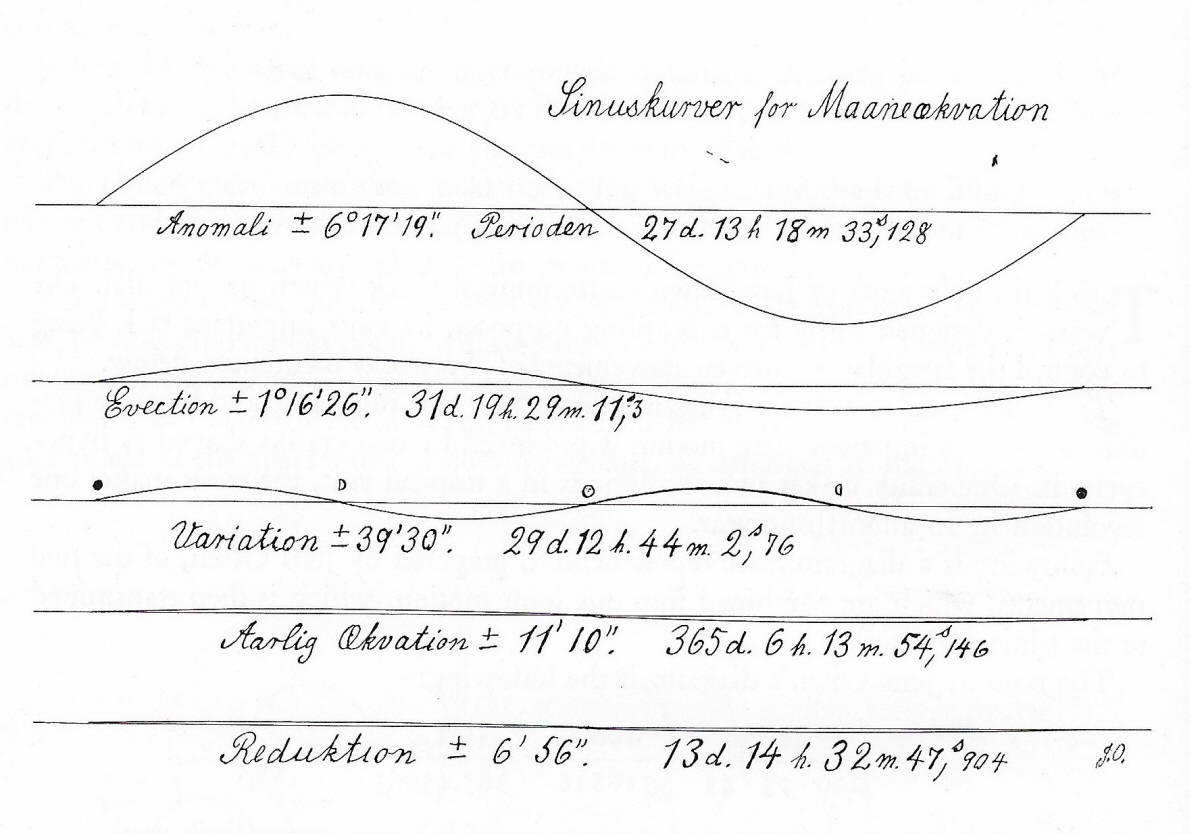 Sinuskurver for Maaneækvation
Anomali ± 6°17'19". Perioden 27d. 13h 18m 33,ˢ128
Evection ± 1°16'26". 31d. 19h. 29m. 11,ˢ3
Variation ± 39'30". 29d. 12h. 44m. 2,ˢ76
Aarlig Ækvation ± 11'10". 365d. 6h. 13m. 54,ˢ146
Reduktion ± 6'56". 13d. 14h. 32m. 47,ˢ904
J.O.